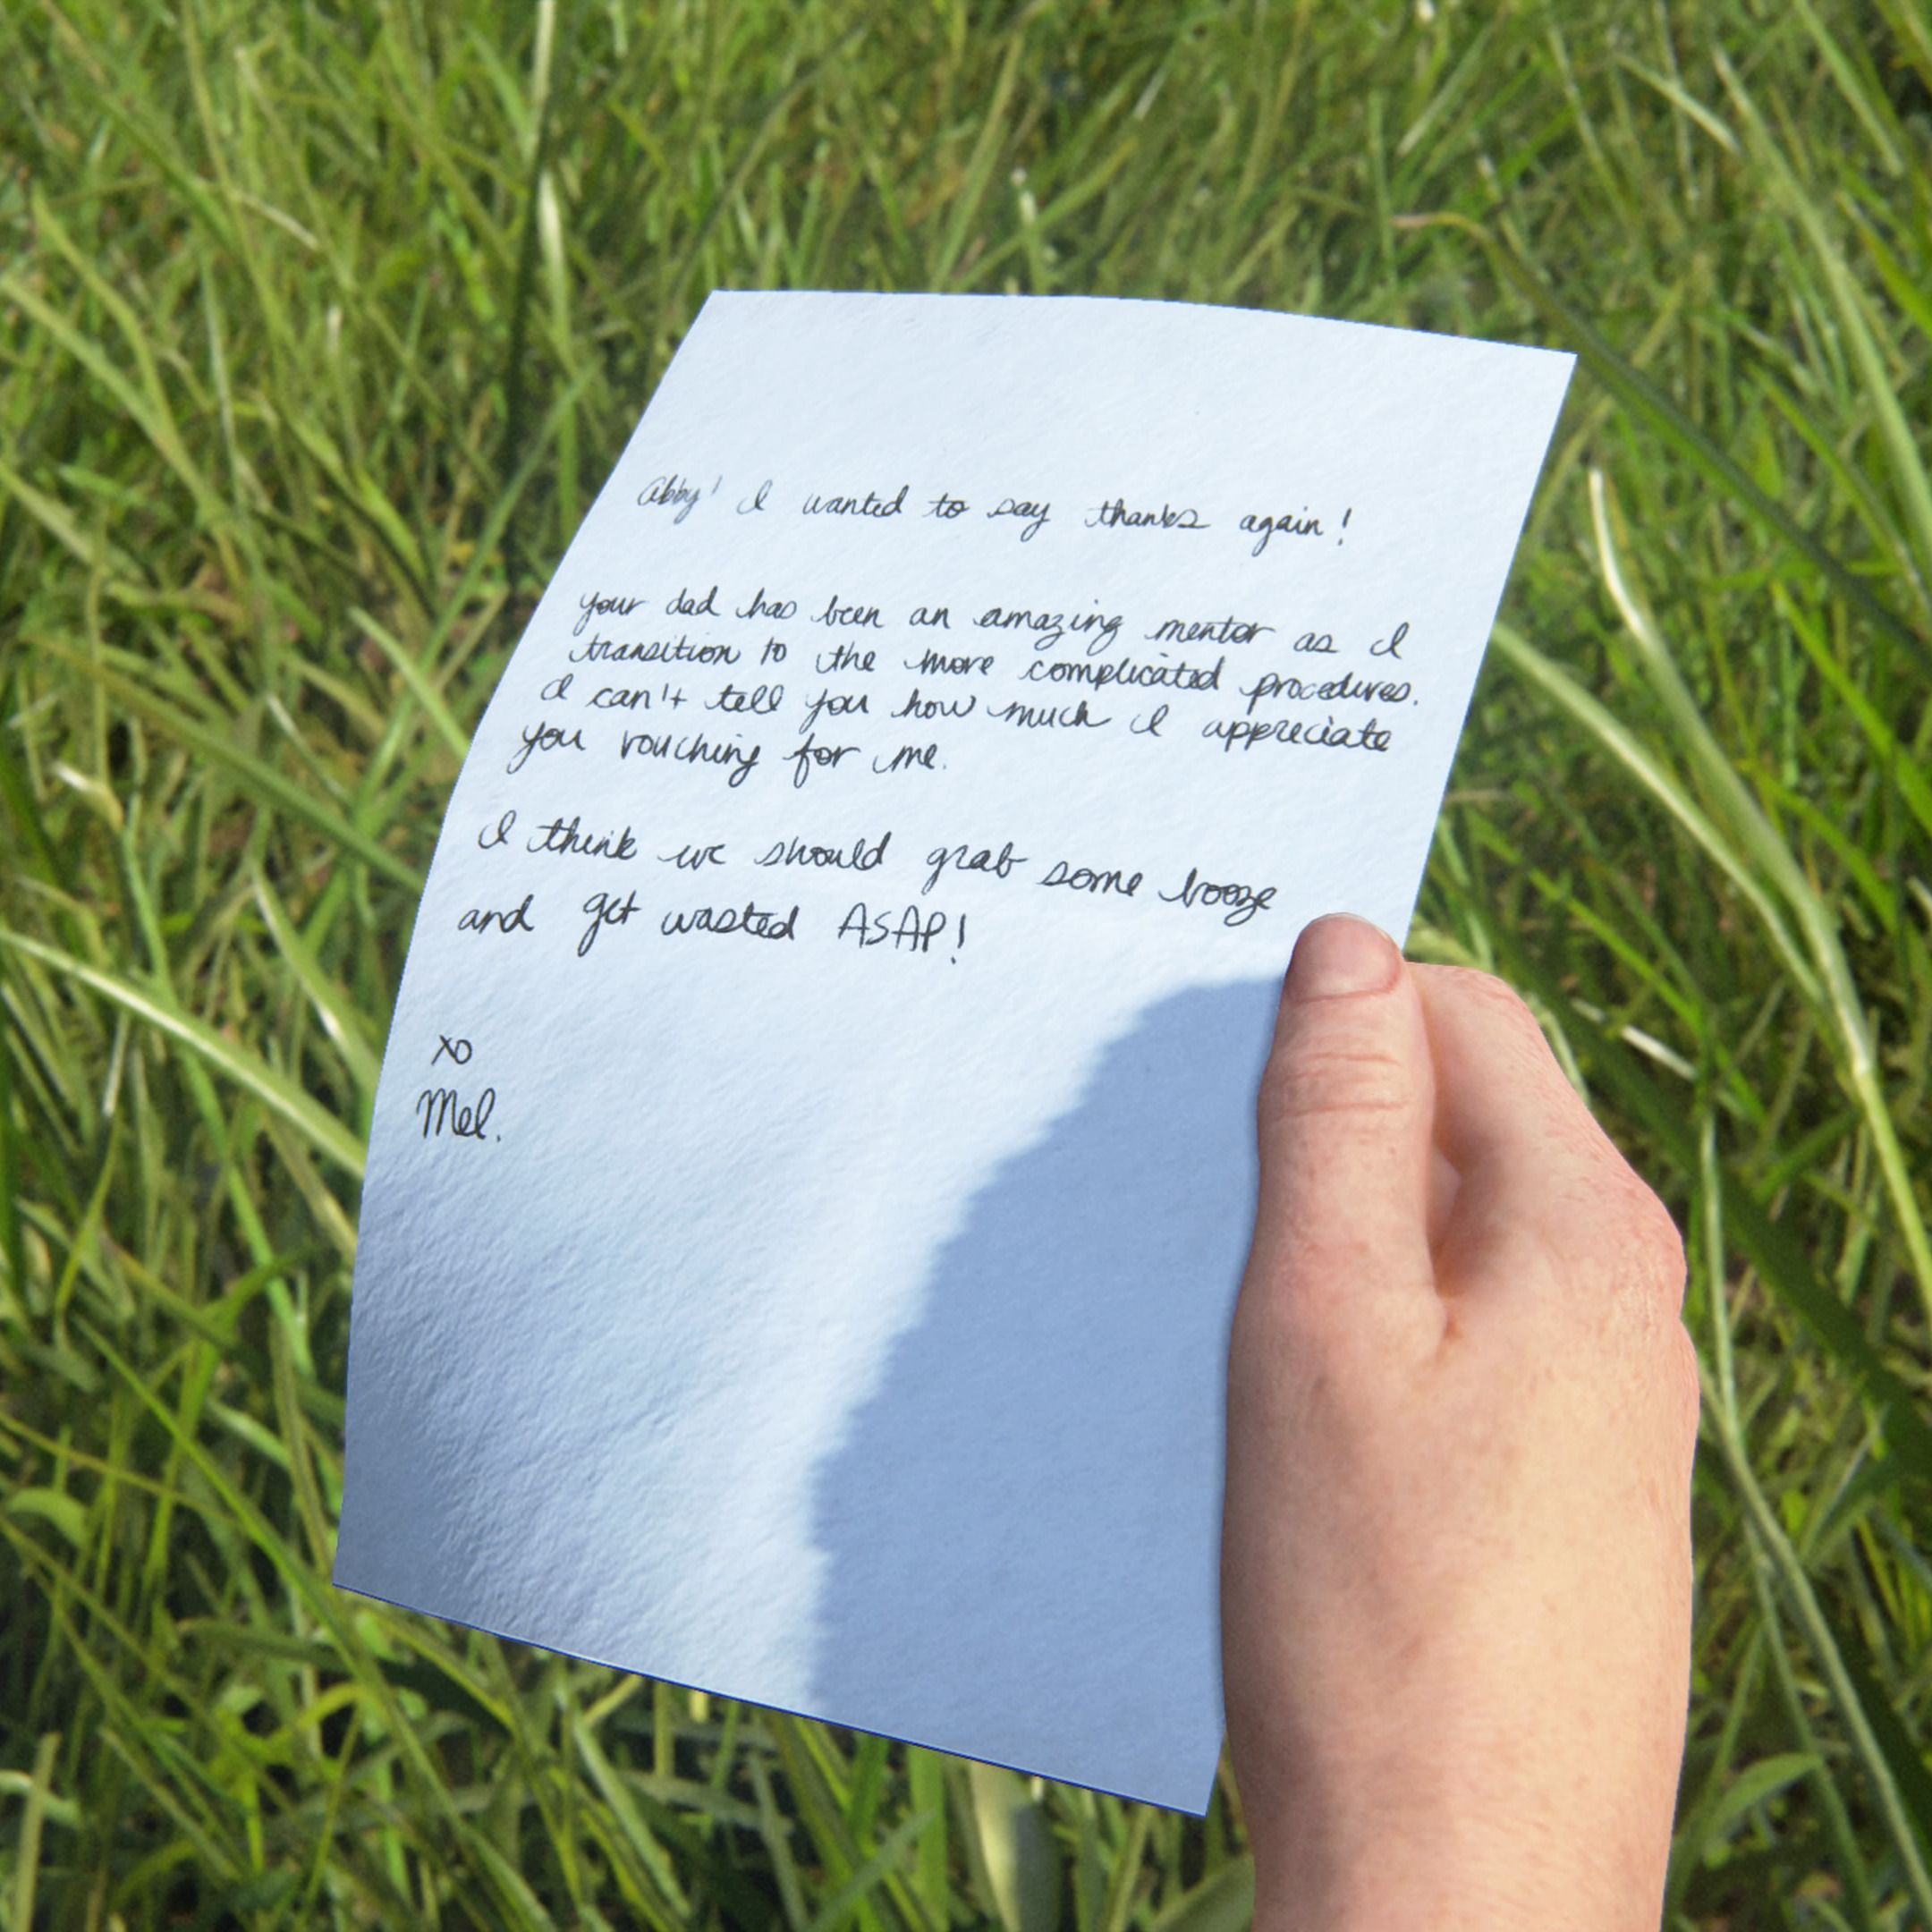 Abby! I wanted to say thanks again!
your dad has been an amazing mentor as I
transition to the more complicated procedures.
I can't tell you how much I appreciate
you vouching for me.
I think we should grab some booze
and get wasted ASAP!
xo
Mel.